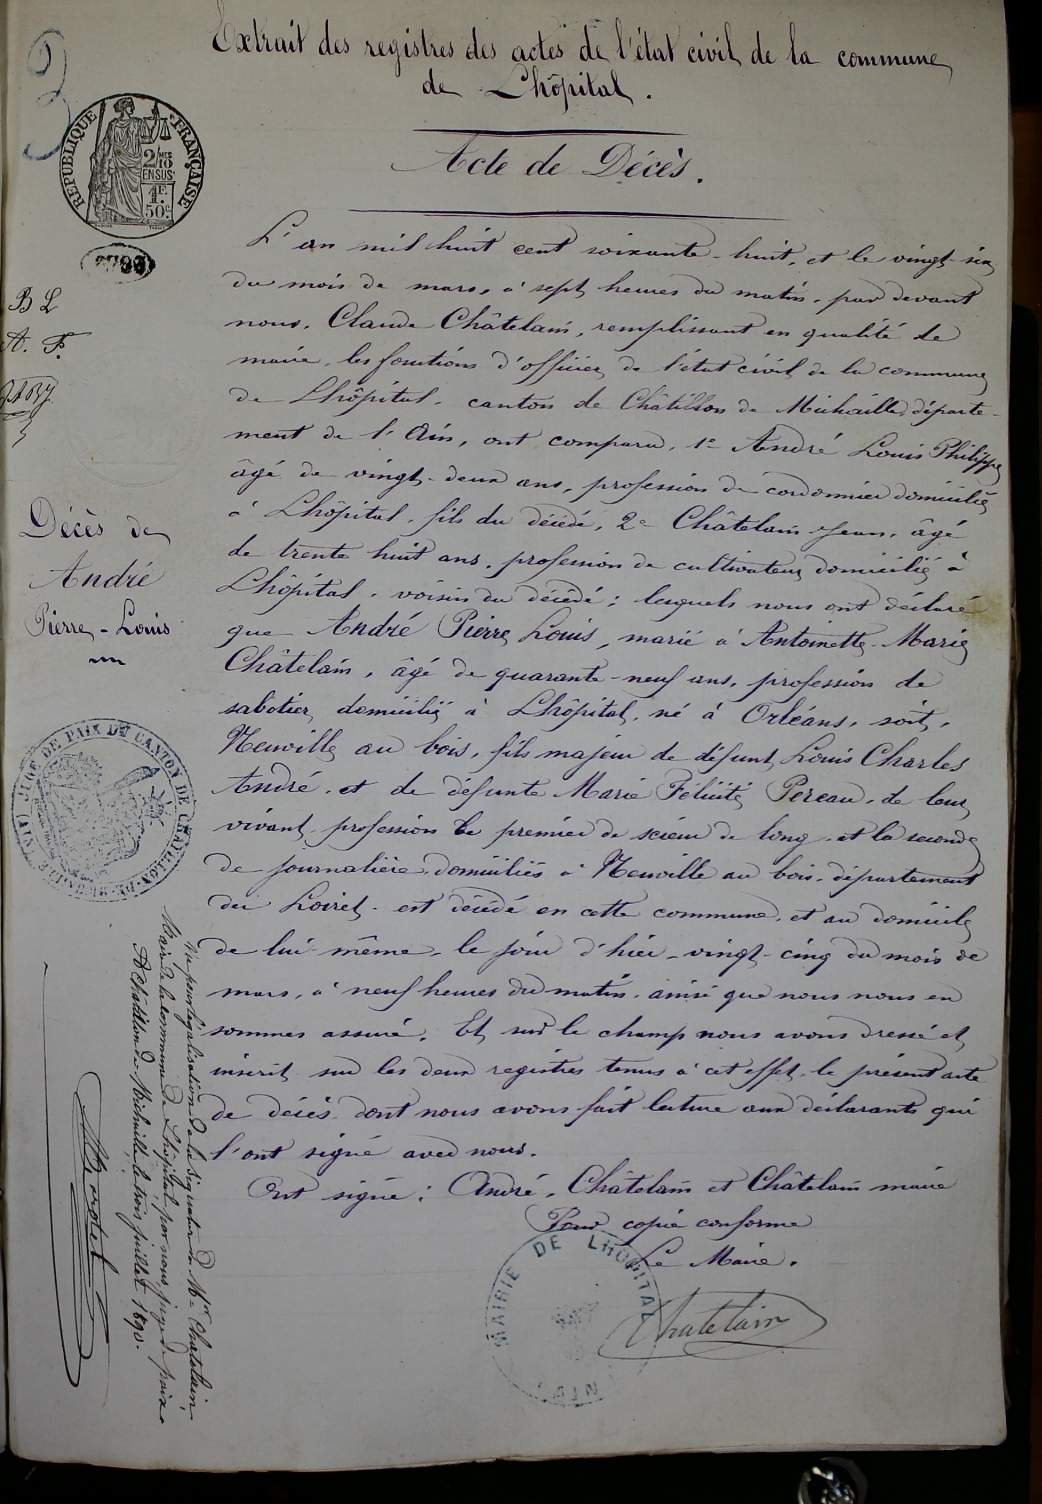 3
Extrait des registres des actes de l'état civil de la commune
de Lhôpital.
Acte de Décès.
RÉPUBLIQUE FRANÇAISE
2/10 MES
EN SUS
1F.
50c
L'an mil huit cent soixante-huit, et le vingt-six
du mois de mars, à sept heures du matin, par devant
nous, Claude Châtelain, remplissant en qualité de
maire, les fonctions d'officier de l'état civil de la commune
de Lhôpital, canton de Châtillon de Michaille, départe-
ment de l'Ain, ont comparu, 1º André Louis Philippe
âgé de vingt-deux ans, profession de cordonnier domicilié
à Lhôpital, fils du décédé, 2º Châtelain Jean, âgé
de trente huit ans, profession de cultivateur domicilié à
Lhôpital, voisin du décédé; lesquels nous ont déclaré
que André Pierre Louis, marié à Antoinette-Marie
Châtelain, âgé de quarante-neuf ans, profession de
sabotier, domicilié à Lhôpital, né à Orléans, soit,
Neuville au bois, fils majeur de défunt Louis Charles
André, et de défunte Marie Félicité Pereau, de leur
vivant profession le premier de scieur de long, et la seconde
de journalière, domiciliés à Neuville au bois, département
du Loiret, est décédé en cette commune, et au domicile
de lui-même, le jour d'hier, vingt-cinq du mois de
mars, à neuf heures du matin, ainsi que nous nous en
sommes assuré. Et sur le champ nous avons dressé et
inscrit sur les deux registres tenus à cet effet le présent acte
de décès dont nous avons fait lecture aux déclarants qui
l'ont signé avec nous.
Ont signé: André, Châtelain et Châtelain maire
Pour copie conforme
Le Maire.
Chatelain
MAIRIE DE LHOPITAL
AIN
B L
A. F.
Décès de
André
Pierre-Louis
JUGE DE PAIX DU CANTON DE CHATILLON-DE-MICHAILLE (AIN)
Vu pour légalisation de la signature de Mr Chatelain,
Maire de la commune de Lhôpital, par nous, juge de paix
A Châtillon de Michaille le trois juillet 1890.